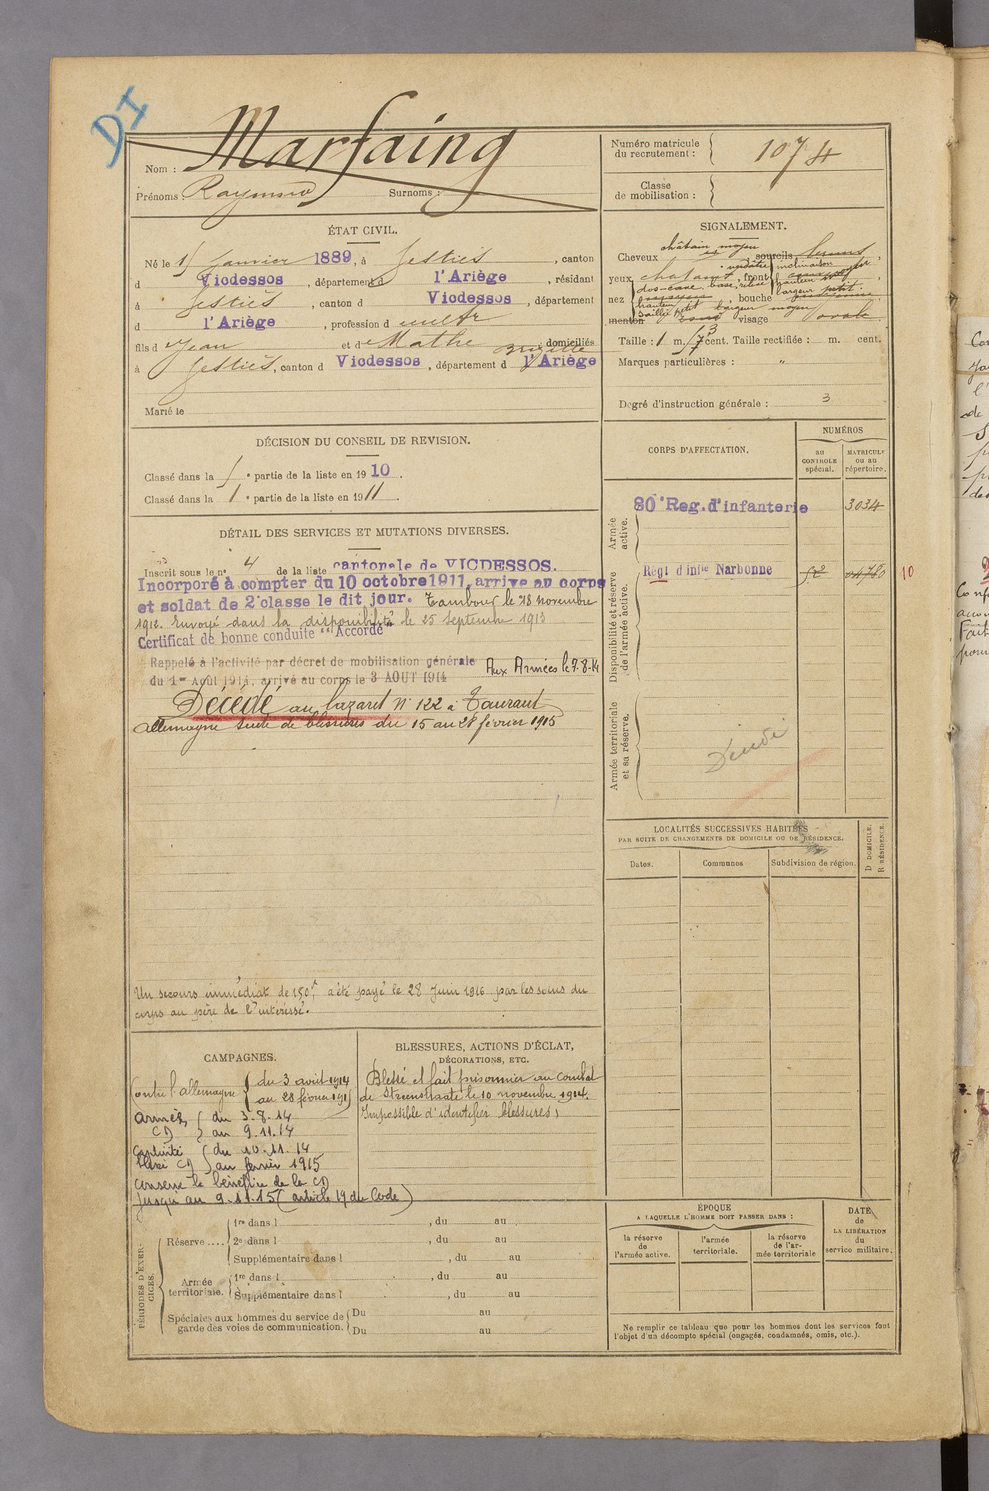 DI
Nom : Marfaing
Prénoms : Raymond Surnoms :
Numéro matricule du recrutement : 1074
Classe de mobilisation :
ÉTAT CIVIL.
Né le 1 janvier 1889, à Gestiès, canton
d Vicdessos, département d l'Ariège, résidant
à Gestiès, canton d Vicdessos, département
d l'Ariège, profession d cultr
fils d Jean et d Mathe domiciliés
à Gestiès, canton d Vicdessos, département d l'Ariège
Marié le
SIGNALEMENT.
châtain moyen
Cheveux sourcils bruns
yeux front inclinaison
dos-cave, base
nez bouche
hauteur
menton visage ovale
Taille : 1 m. cent. Taille rectifiée : m. cent.
Marques particulières : "
Degré d'instruction générale : 3
DÉCISION DU CONSEIL DE REVISION.
Classé dans la partie de la liste en 1910.
Classé dans la 1e partie de la liste en 1911.
DÉTAIL DES SERVICES ET MUTATIONS DIVERSES.
Inscrit sous le n° 4 de la liste cantonale de VICDESSOS.
Incorporé à compter du 10 octobre 1911, arrivé au corps
et soldat de 2e classe le dit jour. Tambour le 28 novembre
1912. Envoyé dans la disponibilité le 25 septembre 1913
Certificat de bonne conduite "Accordé"
Rappelé à l'activité par décret de mobilisation générale Aux Armées le 7-8-14
du 1er Août 1914, arrivé au corps le 3 AOUT 1914
Décédé au lazaret N° 122 à
Allemagne suite de blessures du 15 au 28 février 1915
Un secours immédiat de 150f a été payé le 28 Juin 1916 par les soins du
corps au père de l'intéressé.
CORPS D'AFFECTATION.
NUMÉROS
au CONTROLE spécial.
MATRICULE ou au répertoire.
Armée active.
80e Reg. d'infanterie 3034
Disponibilité et réserve de l'armée active.
Regt d'infie Narbonne 10
Armée territoriale et sa réserve.
Décédé
LOCALITÉS SUCCESSIVES HABITÉES
PAR SUITE DE CHANGEMENTS DE DOMICILE OU DE RÉSIDENCE.
Dates. Communes Subdivision de région. D DOMICILE. R RÉSIDENCE.
CAMPAGNES.
Contre l'allemagne du 3 août 1914
au 28 février 1915
Armées du 3.8.14
CD au 9.11.14
Captivité du 10.11.14
blessé CD au février 1915
conserve le bénéfice de la CD
jusqu'au 9.11.15 (article 19 du Code)
BLESSURES, ACTIONS D'ÉCLAT,
DÉCORATIONS, ETC.
Blessé et fait prisonnier au combat
de le 10 novembre 1914.
Impossible d'identifier blessures
PÉRIODES D'EXERCICES.
Réserve .... 1re dans l , du au
2e dans l , du au
Supplémentaire dans l , du au
Armée territoriale. 1re dans l , du au
Supplémentaire dans l , du au
Spéciales aux hommes du service de garde des voies de communication. Du au
Du au
ÉPOQUE
A LAQUELLE L'HOMME DOIT PASSER DANS :
la réserve de l'armée active.
l'armée territoriale.
la réserve de l'armée territoriale
DATE de LA LIBÉRATION du service militaire.
Ne remplir ce tableau que pour les hommes dont les services font
l'objet d'un décompte spécial (engagés, condamnés, omis, etc.).